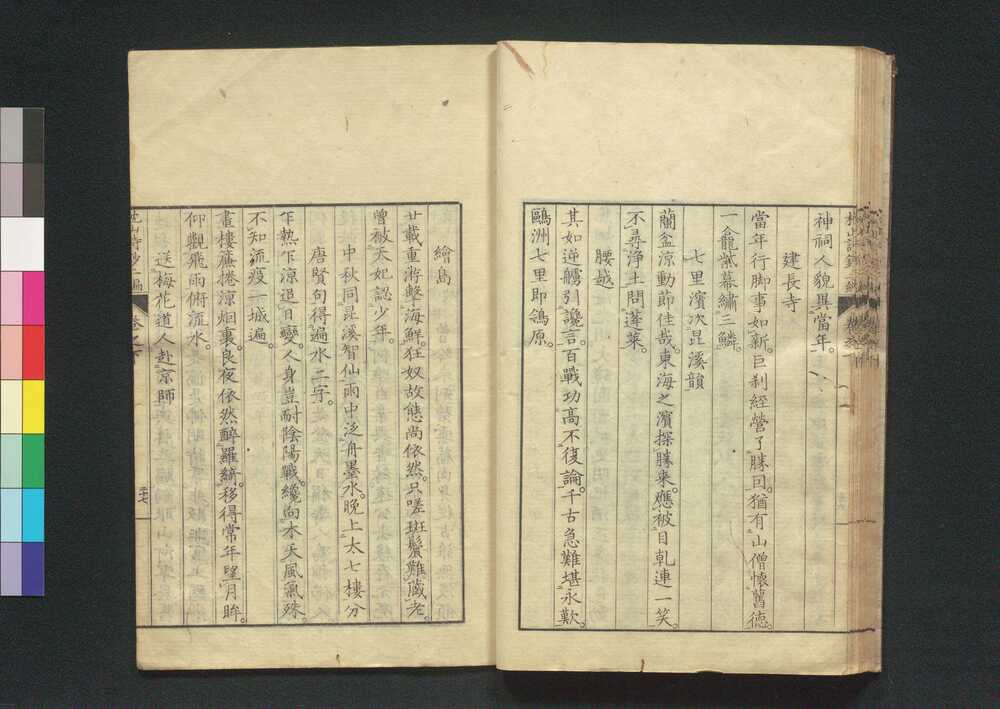 神祠人貌異當年。
建長寺
當年行脚事如新。巨刹經營了勝回。猶有山僧懷舊德。
一龕紫幕繡三鱗。
七里濱次昆溪韻
蘭盆涼動節佳哉。東海之濱探勝來。應被目乾連一笑。
不尋淨土問蓬萊。
腰越
其如逆艣引讒言。百戰功高不復論。千古急難堪永歎。
鷗洲七里即鴒原。
繪島
廿載重游擊海鮮。狂奴故態尚依然。只嗟斑鬢難藏老。
曾被天妃認少年。
中秋同昆溪智仙雨中泛舟墨水。晚上太七樓分
唐賢句得遍水二字。
乍熱乍涼追日變。人身豈耐陰陽戰。纔向本天風氣殊。
不知流疫一城遍。
畫樓簾捲涼烟裏。良夜依然醉羅綺。移得常年望月眸。
仰觀飛雨俯流水。
送梅花道人赴京師